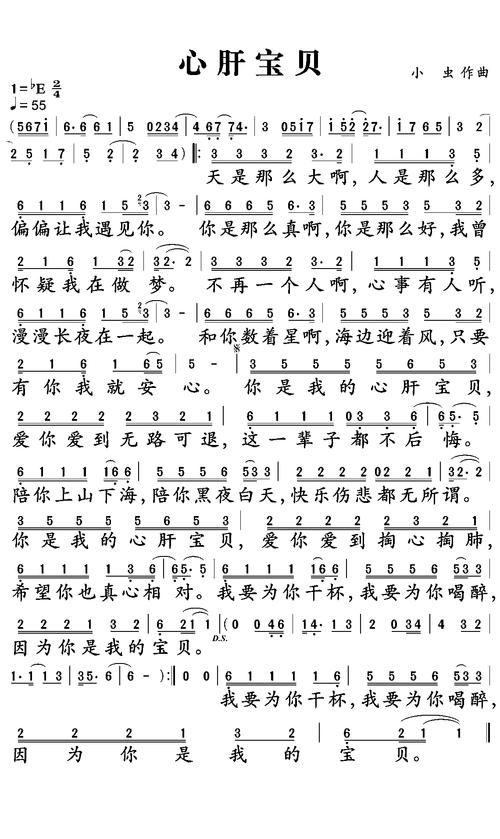 心肝宝贝
小 虫 作曲
1=♭E 2/4
♩=55
(5671 | 6·661 | 5 0234 | 4677·4· | 3 0517 | 1527· | 1765 | 3 2 |
2 5 1 7 | 5· 2 | 2 34) ‖: 3 3 3 2 3·2 | 1 1 1 3 5 |
天是那么大啊,人是那么多,
6 1 1 6 1 5 3 | 3 - | 6 6 6 5 6·3 | 5 5 5 3 2 |
偏偏让我遇见你。 你是那么真啊,你是那么好,我曾
2 1 6 1 32 | 32· 2 | 3 3 3 2 3·2 | 1 1 1 3 5 |
怀疑我在做梦。 不再一个人啊,心事有人听,
6 1 1 6 1 5 3 | 3 - | 6 6 6 5 6·3 | 5 5 5 3 2 |
漫漫长夜在一起。 和你数着星啊,海边迎着风,只要
2 1 6 1 65 | 5 - | 3 5 5 5 5 6 5 3 |
有你我就安心。 你是我的心肝宝贝,
2 2 2 2 2 3 2 1 | 6 1 1 1 1 03 3 6 | 65· 5 |
爱你爱到无路可退,这一辈子都不后悔。
6 1 1 1 166 | 5 5 5 6 533 | 2 2 2 2 02 2 1 | 32· 2 |
陪你上山下海,陪你黑夜白天,快乐伤悲都无所谓。
3 5 5 5 5 6 5 3 | 2 2 2 2 2 3 2 1 |
你是我的心肝宝贝,爱你爱到掏心掏肺,
6 1 1 1 1 3 6 | 65· 5 | 6 1 1 1 166 | 5 5 5 6 533 |
希望你也真心相对。我要为你干杯,我要为你喝醉,
2 2 2 1 3 2 | 6 2 1 1 | (0 046 | 14· | 0 2 34 | 4 32 |
D.S.
因为你是我的宝贝。
1·1 13 | 35·6 | 6 - ):‖ 0 0 | 6 1 1 1 166 | 5 5 5 6 533 |
我要为你干杯,我要为你喝醉,
2 2 2 1 3 2 | 6 2 1 1 ‖
因为你是我的宝贝。